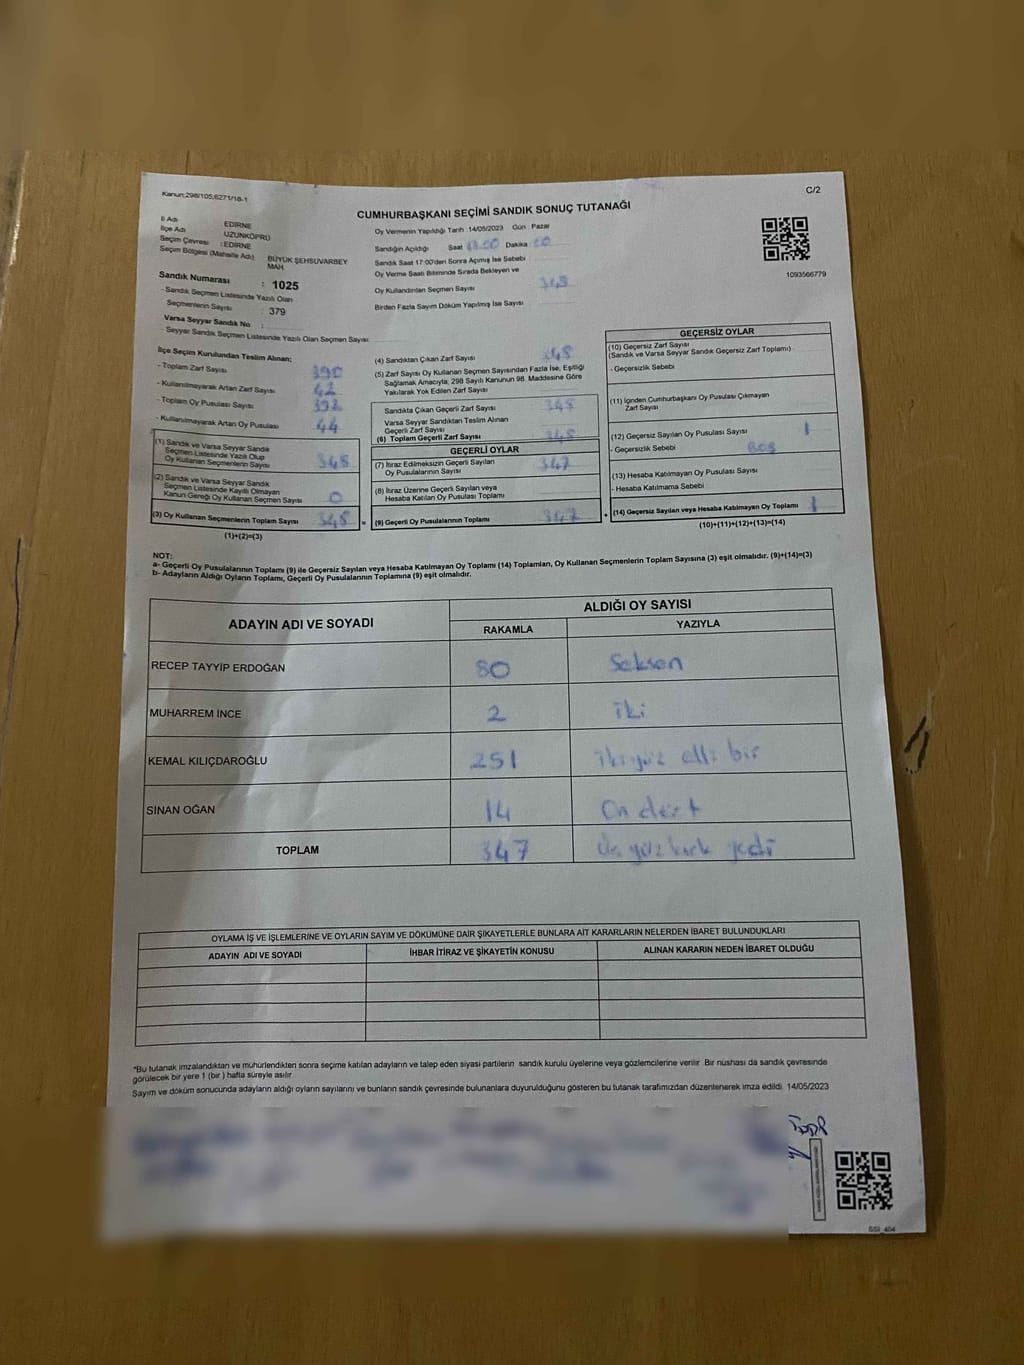 Kanun:298/105,6271/18-1
C/2
CUMHURBAŞKANI SEÇİMİ SANDIK SONUÇ TUTANAĞI
İl Adı EDİRNE
İlçe Adı UZUNKÖPRÜ
Seçim Çevresi : EDİRNE
Seçim Bölgesi (Mahalle Adı) BÜYÜK ŞEHSUVARBEY MAH
Sandık Numarası : 1025
- Sandık Seçmen Listesinde Yazılı Olan
Seçmenlerin Sayısı : 379
Varsa Seyyar Sandık No :
- Seyyar Sandık Seçmen Listesinde Yazılı Olan Seçmen Sayısı
Oy Vermenin Yapıldığı Tarih 14/05/2023 Gün : Pazar
Sandığın Açıldığı Saat Dakika
Sandık Saat 17:00'den Sonra Açılmış İse Sebebi
Oy Verme Saati Bitiminde Sırada Bekleyen ve
Oy Kullandırılan Seçmen Sayısı 348
Birden Fazla Sayım Döküm Yapılmış İse Sayısı
1093566779
İlçe Seçim Kurulundan Teslim Alınan;
- Toplam Zarf Sayısı 390
- Kullanılmayarak Artan Zarf Sayısı 42
- Toplam Oy Pusulası Sayısı 392
- Kullanılmayarak Artan Oy Pusulası 44
(1) Sandık ve Varsa Seyyar Sandık
Seçmen Listesinde Yazılı Olup
Oy Kullanan Seçmenlerin Sayısı 348
(2) Sandık ve Varsa Seyyar Sandık
Seçmen Listesinde Kayıtlı Olmayan
Kanun Gereği Oy Kullanan Seçmen Sayısı 0
(3) Oy Kullanan Seçmenlerin Toplam Sayısı 348
(1)+(2)=(3)
(4) Sandıktan Çıkan Zarf Sayısı 348
(5) Zarf Sayısı Oy Kullanan Seçmen Sayısından Fazla İse, Eşitliği
Sağlamak Amacıyla; 298 Sayılı Kanunun 98. Maddesine Göre
Yakılarak Yok Edilen Zarf Sayısı
Sandıkta Çıkan Geçerli Zarf Sayısı 348
Varsa Seyyar Sandıktan Teslim Alınan
Geçerli Zarf Sayısı
(6) Toplam Geçerli Zarf Sayısı 348
GEÇERLİ OYLAR
(7) İtiraz Edilmeksizin Geçerli Sayılan
Oy Pusulalarının Sayısı 347
(8) İtiraz Üzerine Geçerli Sayılan veya
Hesaba Katılan Oy Pusulası Toplamı
= (9) Geçerli Oy Pusulalarının Toplamı 347
GEÇERSİZ OYLAR
(10) Geçersiz Zarf Sayısı
(Sandık ve Varsa Seyyar Sandık Geçersiz Zarf Toplamı)
- Geçersizlik Sebebi
(11) İçinden Cumhurbaşkanı Oy Pusulası Çıkmayan
Zarf Sayısı
(12) Geçersiz Sayılan Oy Pusulası Sayısı 1
- Geçersizlik Sebebi BOŞ
(13) Hesaba Katılmayan Oy Pusulası Sayısı
- Hesaba Katılmama Sebebi
+ (14) Geçersiz Sayılan veya Hesaba Katılmayan Oy Toplamı 1
(10)+(11)+(12)+(13)=(14)
NOT:
a- Geçerli Oy Pusulalarının Toplamı (9) ile Geçersiz Sayılan veya Hesaba Katılmayan Oy Toplamı (14) Toplamları, Oy Kullanan Seçmenlerin Toplam Sayısına (3) eşit olmalıdır. (9)+(14)=(3)
b- Adayların Aldığı Oyların Toplamı, Geçerli Oy Pusulalarının Toplamına (9) eşit olmalıdır.
ADAYIN ADI VE SOYADI ALDIĞI OY SAYISI
RAKAMLA YAZIYLA
RECEP TAYYİP ERDOĞAN 80 Seksen
MUHARREM İNCE 2 İki
KEMAL KILIÇDAROĞLU 251 İkiyüz elli bir
SİNAN OĞAN 14 On dört
TOPLAM 347 Üç yüz kırk yedi
OYLAMA İŞ VE İŞLEMLERİNE VE OYLARIN SAYIM VE DÖKÜMÜNE DAİR ŞİKAYETLERLE BUNLARA AİT KARARLARIN NELERDEN İBARET BULUNDUKLARI
ADAYIN ADI VE SOYADI İHBAR İTİRAZ VE ŞİKAYETİN KONUSU ALINAN KARARIN NEDEN İBARET OLDUĞU
*Bu tutanak imzalandıktan ve mühürlendikten sonra seçime katılan adayların ve talep eden siyasi partilerin sandık kurulu üyelerine veya gözlemcilerine verilir. Bir nüshası da sandık çevresinde
görülecek bir yere 1 (bir ) hafta süreyle asılır.
Sayım ve döküm sonucunda adayların aldığı oyların sayılarını ve bunların sandık çevresinde bulunanlara duyurulduğunu gösteren bu tutanak tarafımızdan düzenlenerek imza edildi. 14/05/2023